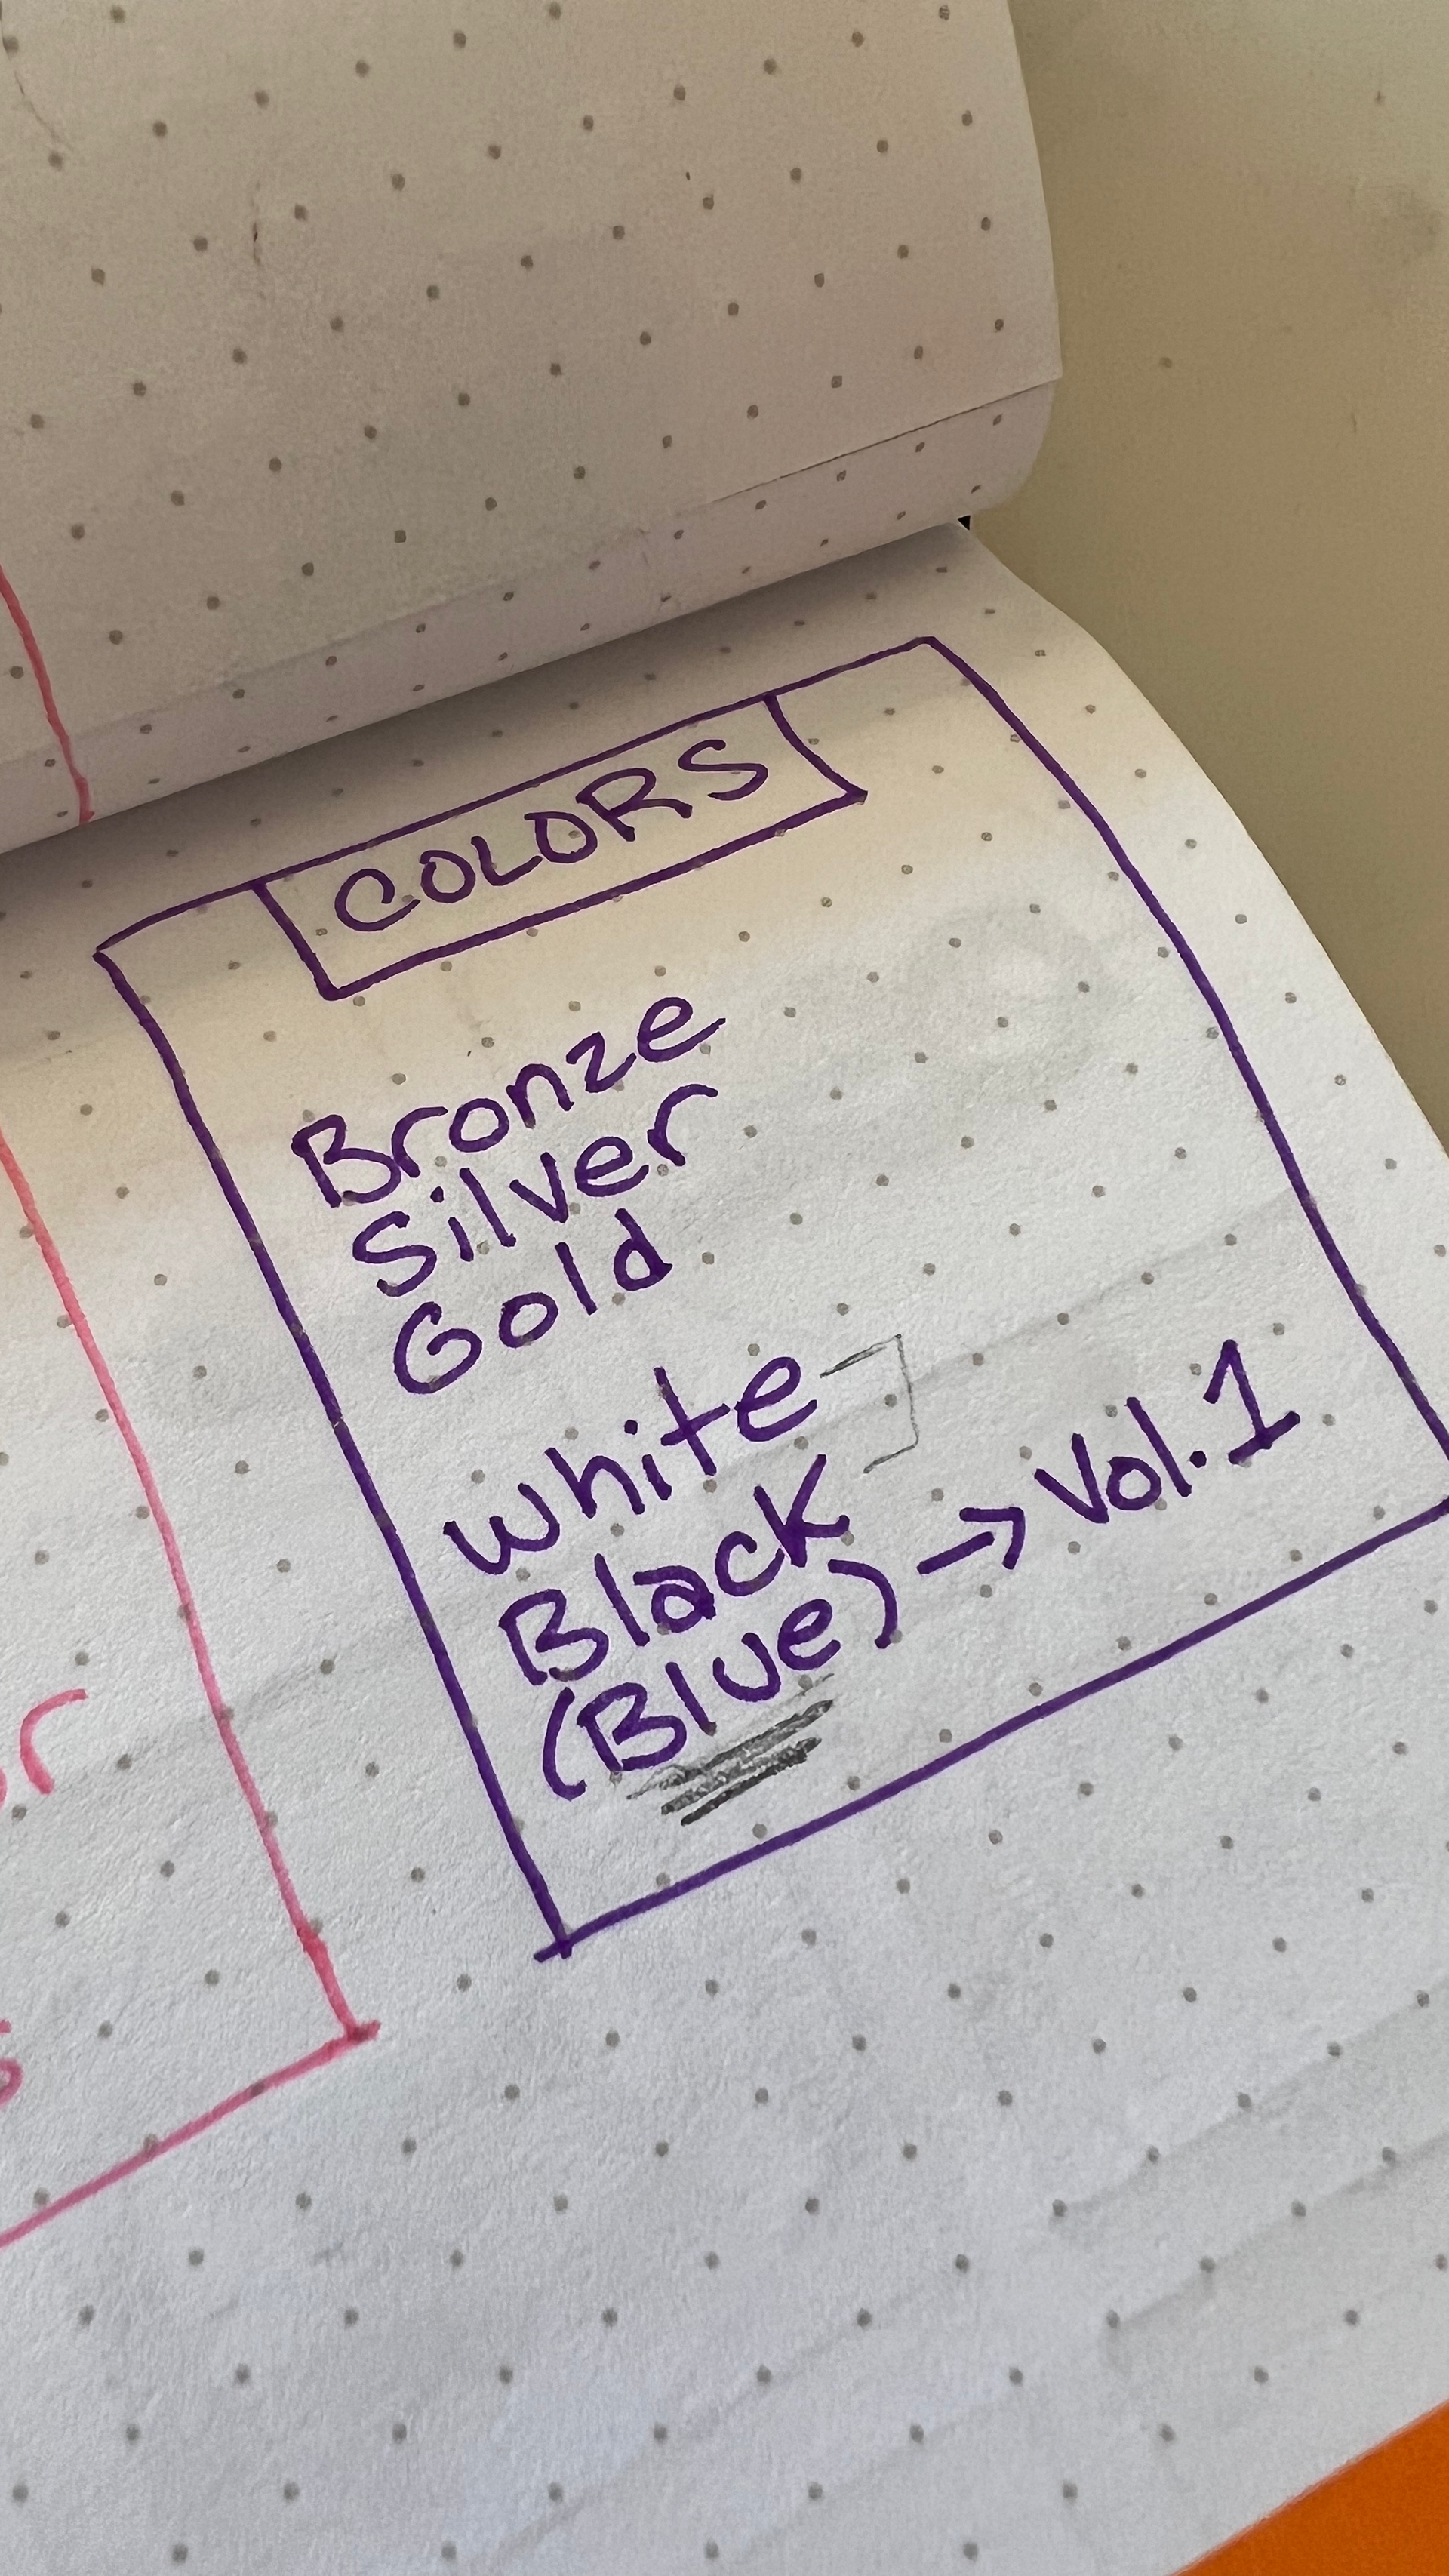 COLORS
Bronze
Silver
Gold
White
Black
(Blue) → Vol. 1